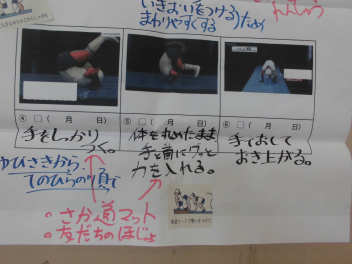 れんしゅう
いきおいをつける)ため
まわりやすくする
④ □( 月 日)
⑤ □( 月 日)
⑥ □( 月 日)
手をしっかり
つく。
体を丸めたまま
手と首にグッと
力を入れる。
手でおして
おき上がる。
ゆびさきから
てのひらの順で
さか道マット
友だちのほじょ